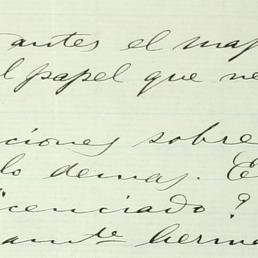 antes el map
l papel que ne
ciones sobre
lo demas. E
icenciado?
amte herma